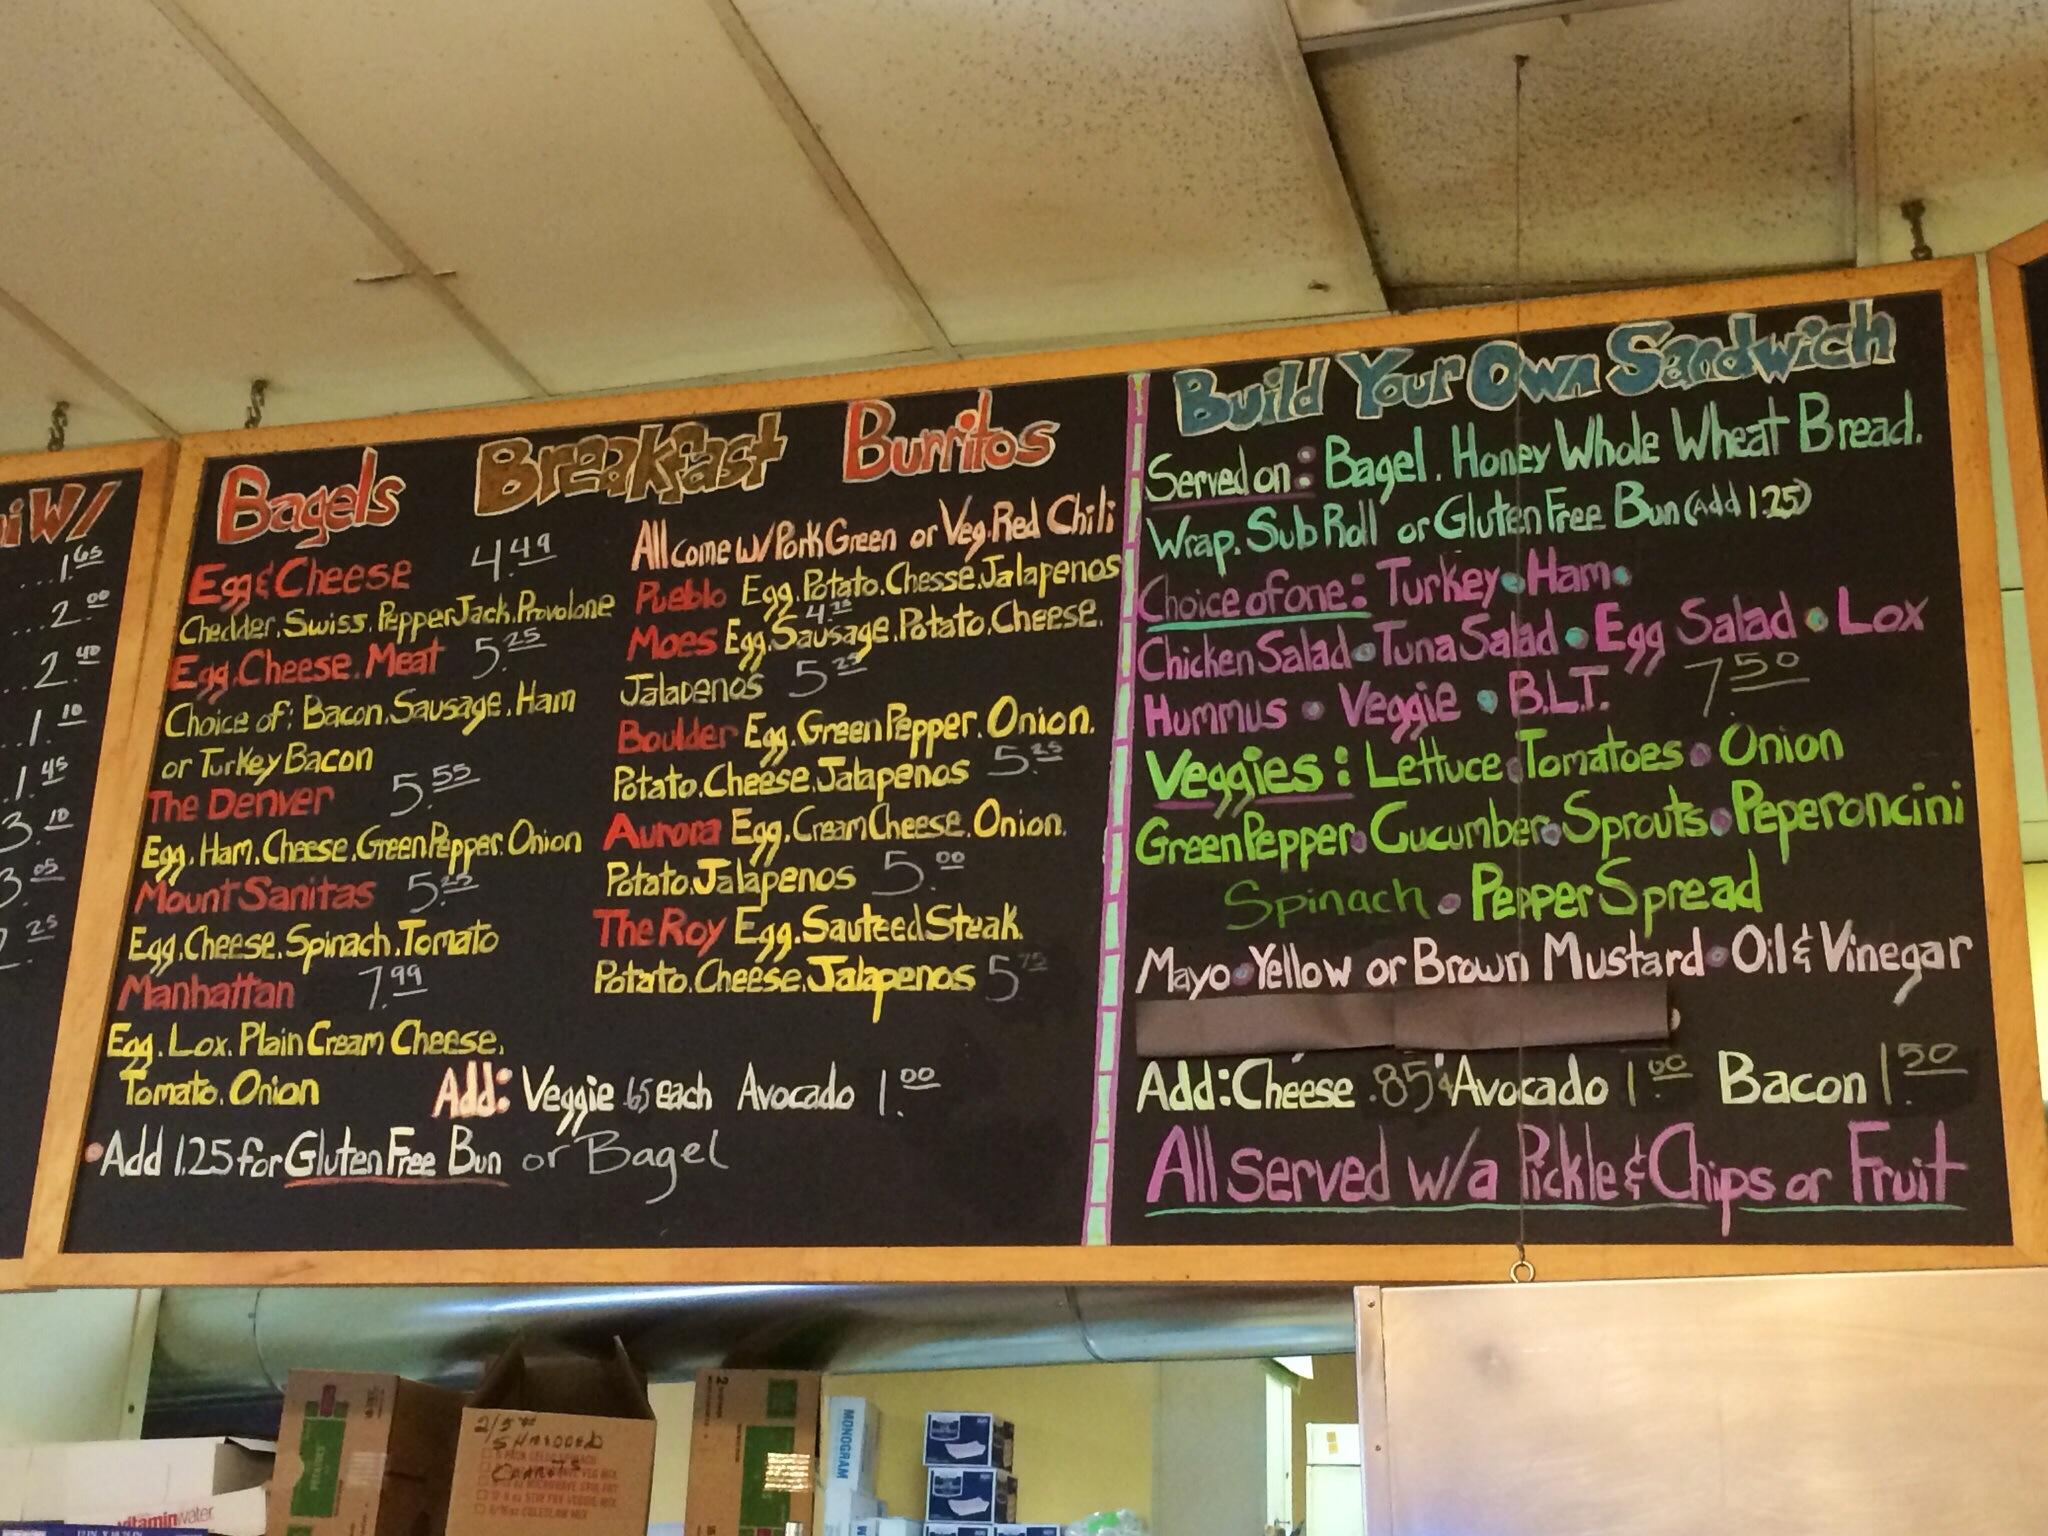 W/
1.65
2.00
2.40
1.10
1.45
3.10
3.05
.25
Bagels Breakfast Burritos
Egg & Cheese 4.49
Chedder. Swiss. Pepper Jack. Provolone
Egg. Cheese. Meat 5.25
Choice of: Bacon. Sausage. Ham
or Turkey Bacon
The Denver 5.55
Egg. Ham. Cheese. Green Pepper. Onion
Mount Sanitas 5.25
Egg. Cheese. Spinach. Tomato
Manhattan 7.99
Egg. Lox. Plain Cream Cheese.
Tomato. Onion
All come w/ Pork Green or Veg. Red Chili
Pueblo Egg. Potato. Chesse. Jalapenos
4.75
Moes Egg. Sausage. Potato. Cheese.
Jalapenos 5.25
Boulder Egg. Green Pepper. Onion.
Potato. Cheese. Jalapenos 5.25
Aurora Egg. Cream Cheese. Onion.
Potato. Jalapenos 5.00
The Roy Egg. Sauteed Steak.
Potato. Cheese. Jalapenos 5.75
Add: Veggie .65 each Avocado 1.00
• Add 1.25 for Gluten Free Bun or Bagel
Build Your Own Sandwich
Served on: Bagel. Honey Whole Wheat Bread.
Wrap. Sub Roll or Gluten Free Bun (Add 1.25)
Choice of one: Turkey • Ham •
Chicken Salad • Tuna Salad • Egg Salad • Lox
Hummus • Veggie • B.L.T. 7.50
Veggies: Lettuce • Tomatoes • Onion
Green Pepper • Cucumber • Sprouts • Peperoncini
Spinach • Pepper Spread
Mayo • Yellow or Brown Mustard • Oil & Vinegar
Add: Cheese .85¢ Avocado 1.00 Bacon 1.50
All served w/a Pickle & Chips or Fruit
2/5#
SHREDDED
CARROTS
MONOGRAM
vitaminwater